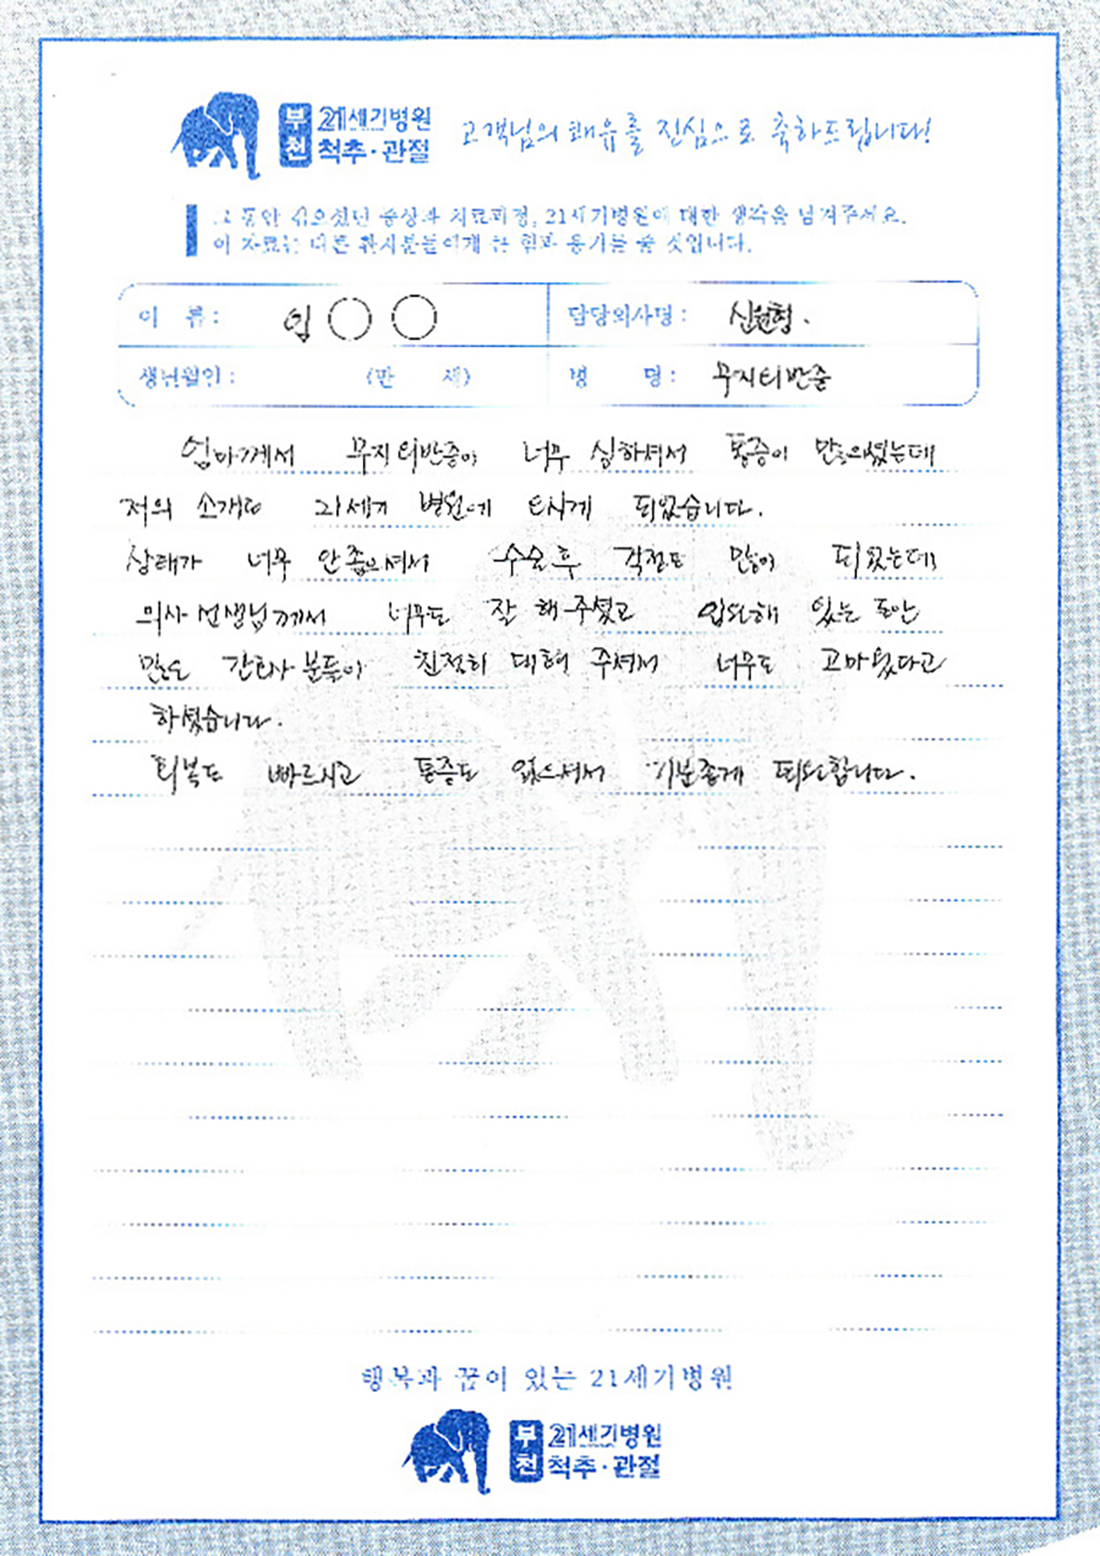 부천 21세기병원 척추·관절
고객님의 쾌유를 진심으로 축하드립니다!
그 동안 겪으셨던 증상과 치료과정, 21세기병원에 대한 생각을 남겨주세요.
이 자료는 다른 환자분들에게 큰 힘과 용기를 줄 것입니다.
이 름: 임○○ 담당의사명: 신원형.
생년월일: (만 세) 병 명: 무지외반증
엄마께서 무지외반증이 너무 심하셔서 통증이 많으셨는데
저의 소개로 21세기 병원에 오시게 되었습니다.
상태가 너무 안좋으셔서 수술후 걱정도 많이 되었는데
의사 선생님께서 너무도 잘 해주셨고 입원해 있는 동안
많은 간호사분들이 친절히 대해 주셔서 너무도 고마웠다고
하셨습니다.
회복도 빠르시고 통증도 없으셔서 기분좋게 퇴원합니다.
행복과 꿈이 있는 21세기병원
부천 21세기병원 척추·관절